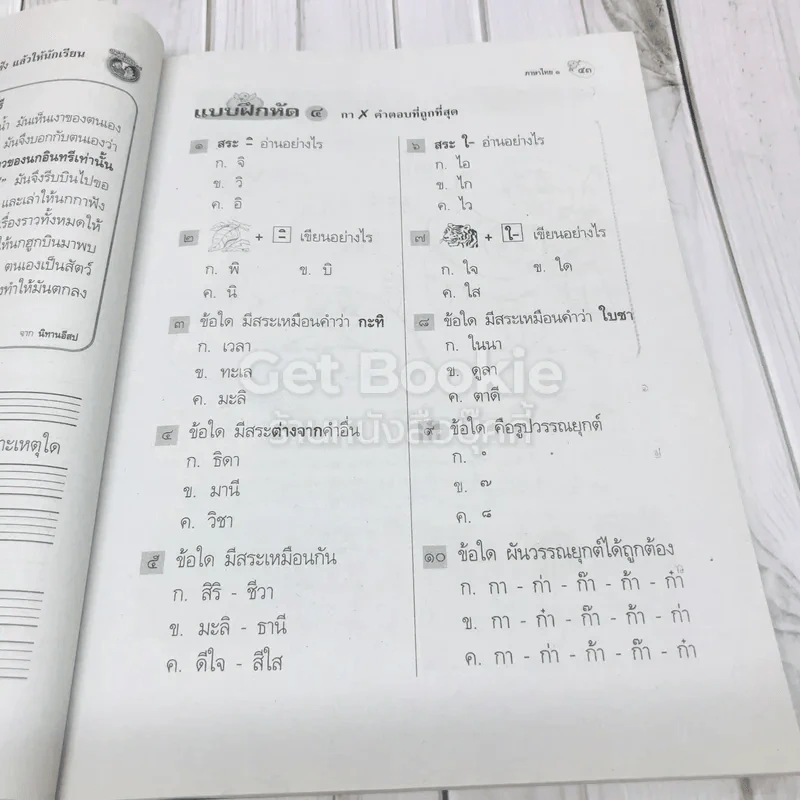 แล้วให้นักเรียน
น้ำ มันเห็นเงาของตนเอง
มันจึงบอกกับตนเองว่า
วของนกอินทรีเท่านั้น
มันจึงรีบบินไปขอ
และเล่าให้นกกาฟัง
รื่องราวทั้งหมดให้
ให้นกฮูกบินมาพบ
ตนเองเป็นสัตว์
งทำให้มันตกลง
จาก นิทานอีสป
าะเหตุใด
ภาษาไทย ๑ ๔๓
แบบฝึกหัด ๔ กา X คำตอบที่ถูกที่สุด
๑ สระ -ิ อ่านอย่างไร
ก. จิ
ข. วิ
ค. อิ
๒ + -ิ เขียนอย่างไร
ก. พิ ข. บิ
ค. นิ
๓ ข้อใด มีสระเหมือนคำว่า กะทิ
ก. เวลา
ข. ทะเล
ค. มะลิ
๔ ข้อใด มีสระต่างจากคำอื่น
ก. ธิดา
ข. มานี
ค. วิชา
๕ ข้อใด มีสระเหมือนกัน
ก. สิริ - ชีวา
ข. มะลิ - ธานี
ค. ดีใจ - สีใส
๖ สระ ใ- อ่านอย่างไร
ก. ไอ
ข. ไก
ค. ไว
๗ + ใ- เขียนอย่างไร
ก. ใจ ข. ใด
ค. ใส
๘ ข้อใด มีสระเหมือนคำว่า ใบชา
ก. ในนา
ข. ดูลา
ค. ตาดี
๙ ข้อใด คือรูปวรรณยุกต์
ก.
ข. ๗
ค. ๘
๑๐ ข้อใด ผันวรรณยุกต์ได้ถูกต้อง
ก. กา - ก่า - ก๊า - ก้า - ก๋า
ข. กา - ก๋า - ก๊า - ก้า - ก่า
ค. กา - ก่า - ก้า - ก๊า - ก๋า
Get Bookie
ร้านหนังสือบุ๊คกี้